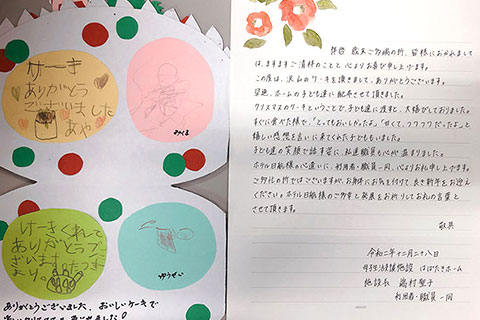 けーき
ありがとう
ございました
あや
みくる
けーきくれて
ありがとうブ
ざいます
ゆうせい
ありがとうございました。おいしいケーキで
拝啓 歳末ご多端の折、皆様におかれまして
は、ますますご清祥のことと心よりお喜び申し上げます。
この度は、沢山のケーキを頂きまして、ありがとうございます。
早速、ホームの子ども達に配らせて頂きました。
クリスマスのケーキということで、子ども達に渡すと、大喜びしておりました。
すぐに食べた様で、「とってもおいしかったよ」「甘くて、フワフワだったよ」と
嬉しい感想を言いに来てくれた子どももいました。
子ども達の笑顔で話す姿に、私達職員も心が温まりました。
ホテル日航様の心遣いに、利用者・職員一同、心よりお礼申し上げます。
ご多忙の折ではございますが、お身体にお気を付けて、良き新年をお迎え
ください。ホテル日航様のご多幸と発展をお祈りしてお礼の言葉と
させて頂きます。
敬具
令和二年十二月二十八日
母子生活支援施設 はばたきホーム
施設長
利用者・職員一同